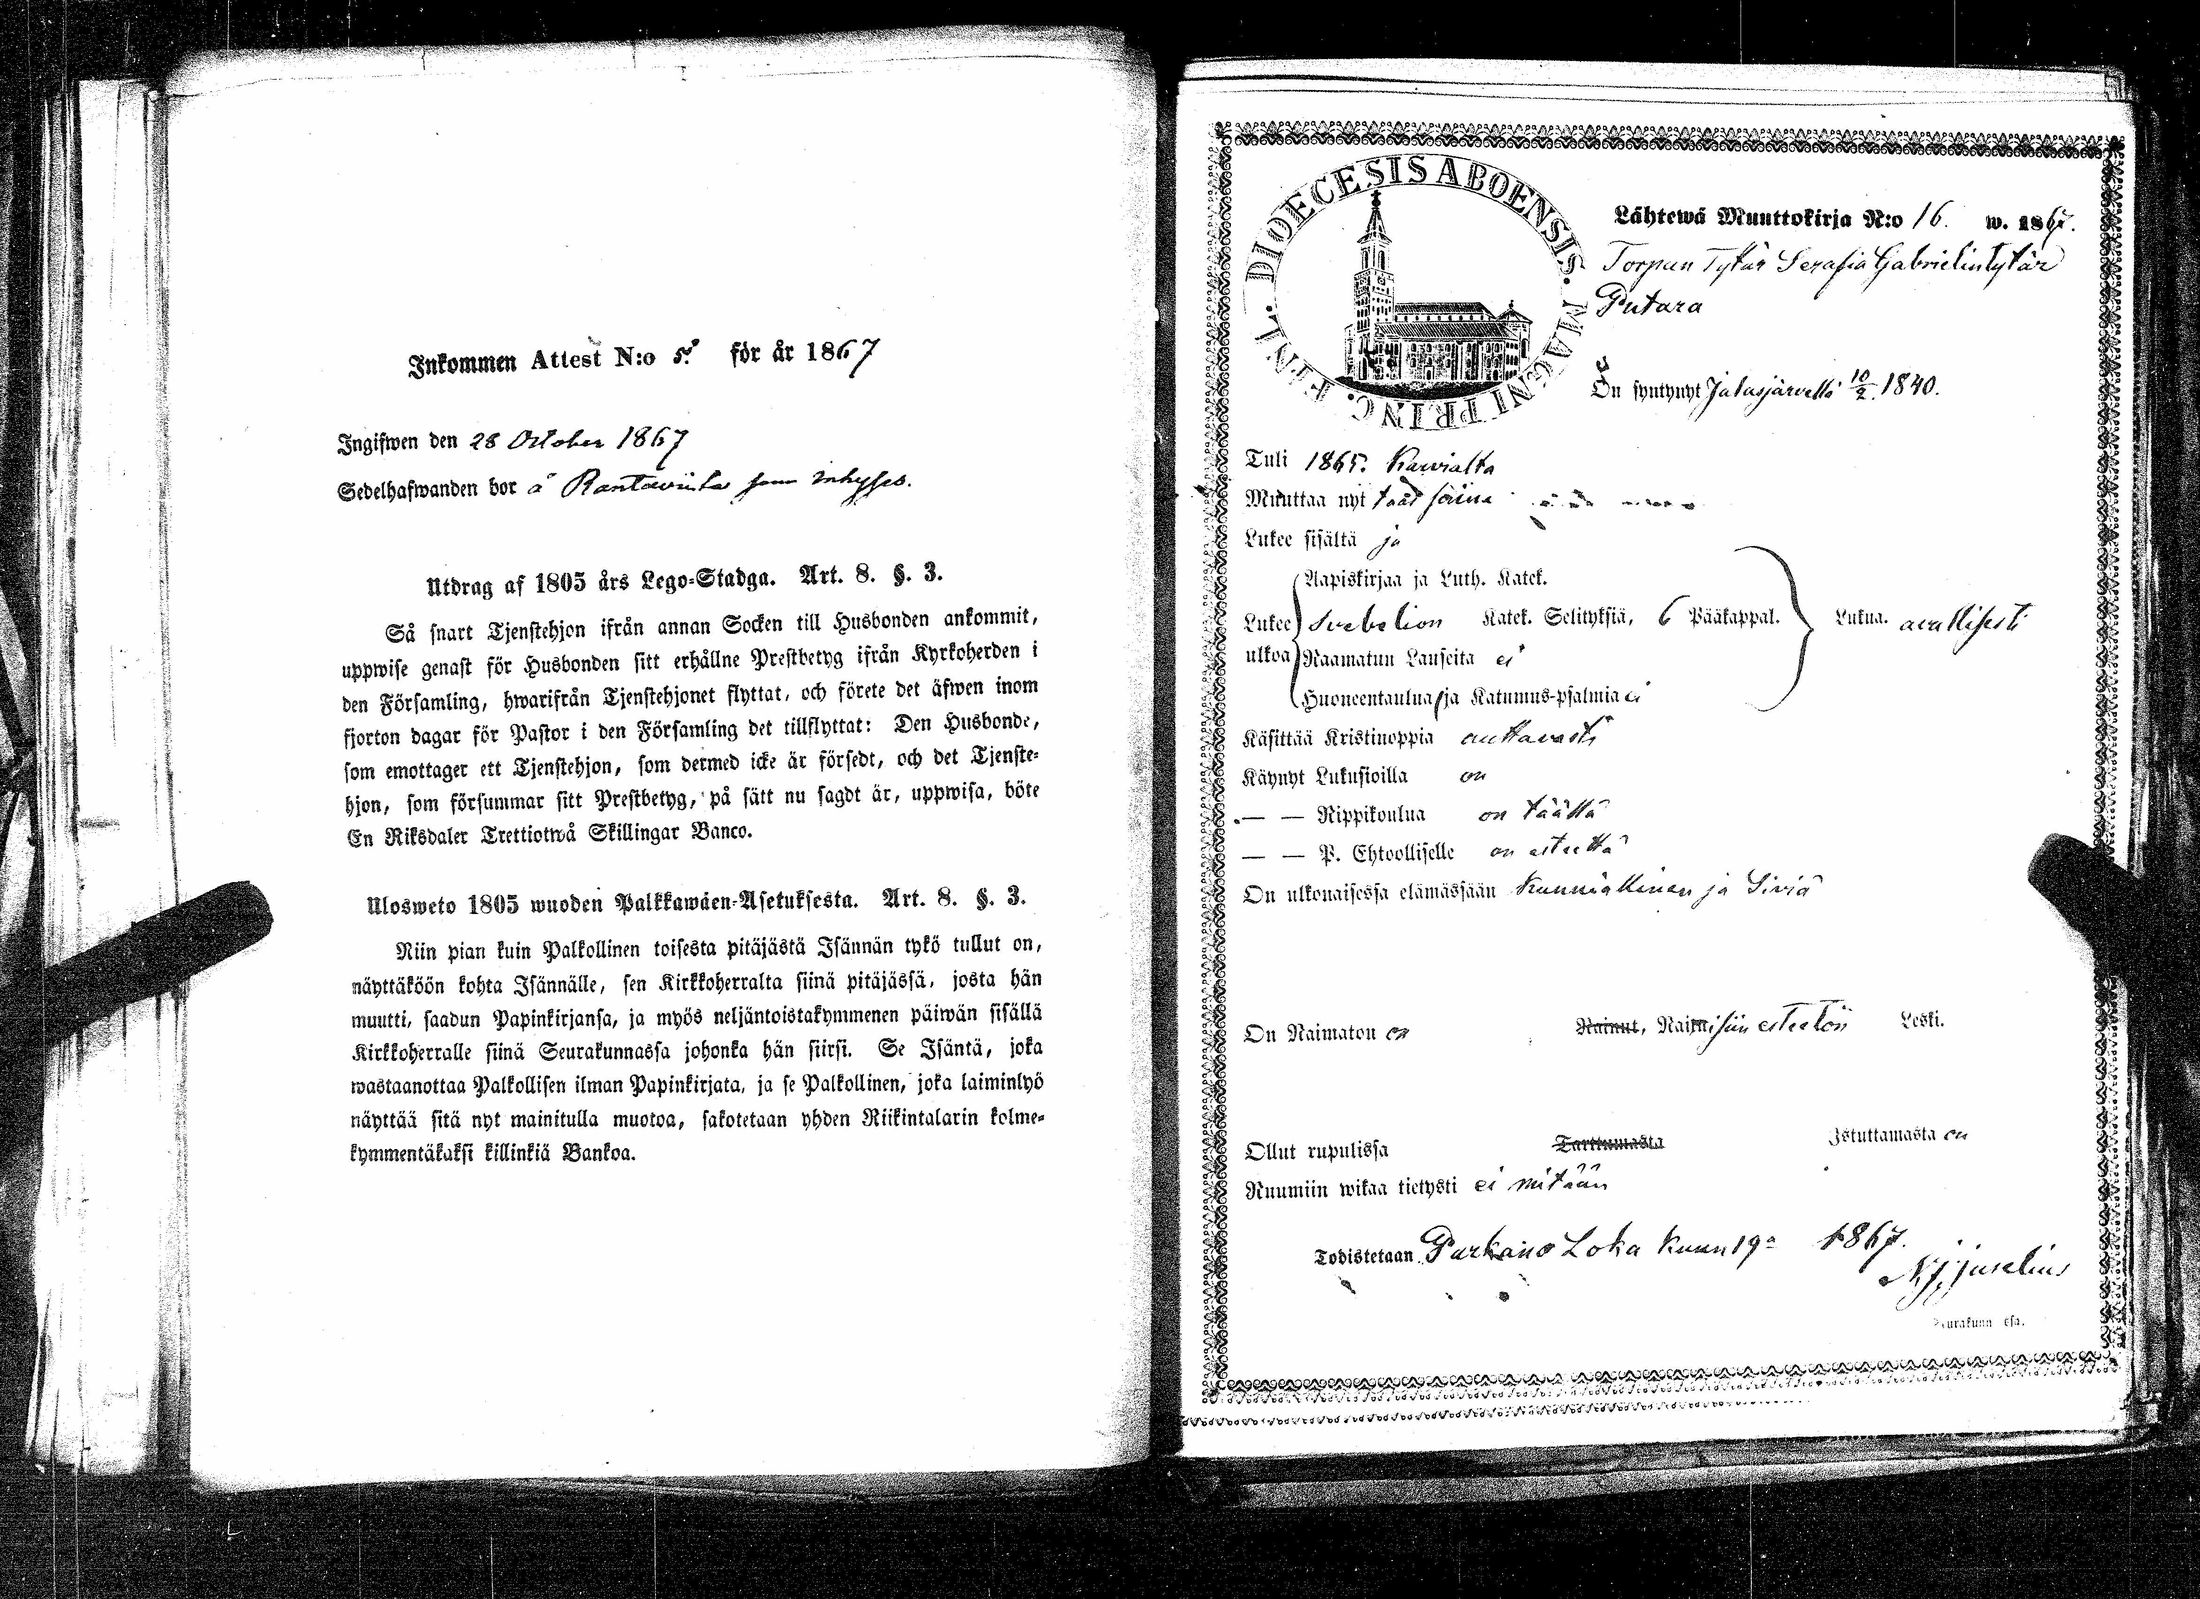 Inkommen Attest N:o 5. för år 1867
Ingifwen den 28 October 1867
Sedelhafwanden bor å Rantawiita som inhyses.
Utdrag af 1805 års Lego-Stadga. Art. 8. §. 3.
Så snart Tjenstehjon ifrån annan Socken till Husbonden ankommit,
uppwise genast för Husbonden sitt erhållne Prestbetyg ifrån Kyrkoherden i
den Församling, hwarifrån Tjenstehjonet flyttat, och förete det äfwen inom
fjorton dagar för Pastor i den Församling det tillflyttat: Den Husbonde,
som emottager ett Tjenstehjon, som dermed icke är försedt, och det Tjenste-
hjon, som försummar sitt Prestbetyg, på sätt nu sagdt är, uppwisa, böte
En Riksdaler Trettiotwå Skillingar Banco.
Ulosweto 1805 wuoden Palkkawäen-Asetuksesta. Art. 8. §. 3.
Niin pian kuin Palkollinen toisesta pitäjästä Isännän tykö tullut on,
näyttäköön kohta Isännälle, sen Kirkkoherralta siinä pitäjässä, josta hän
muutti, saadun Papinkirjansa, ja myös neljäntoistakymmenen päiwän sisällä
Kirkkoherralle siinä Seurakunnassa johonka hän siirsi. Se Isäntä, joka
wastaanottaa Palkollisen ilman Papinkirjata, ja se Palkollinen, joka laiminlyö
näyttää sitä nyt mainitulla muotoa, sakotetaan yhden Riikintalarin kolme-
kymmentäkaksi killinkiä Bankoa.
DIOECESIS ABOENSIS. MAGNI PRINC. FINL.
Lähtewä Muuttokirja N:o 16. w. 1867.
Torpan Tytär Serafia Gabrielintytär
Putara
On syntynyt Jalasjärvellä 10/2 1840.
Tuli 1865. Karvialta
Muuttaa nyt taas sinne
Lukee sisältä ja
Aapiskirjaa ja Luth. Katek.
Lukee ulkoa Svebelion Katek. Selityksiä, 6 Pääkappal. Lukua. avullisesti
Raamatun Lauseita ei
Huoneentaulua ja Katumus-psalmia ei
Käsittää Kristinoppia auttavasti
Käynyt Lukusioilla on
— — Rippikoulua on täällä
— — P. Ehtoolliselle on esteettä
On ulkonaisessa elämässään kunniallinen ja Siviä
On Naimaton on Nainut, Naimisiin esteetön Leski.
Ollut rupulissa Tarttumasta Istuttamasta on
Ruumiin wikaa tietysti ei mitään
Todistetaan Parkano Loka kuun 19ä 1867.
N. J. Juselius
Seurakunn esa.